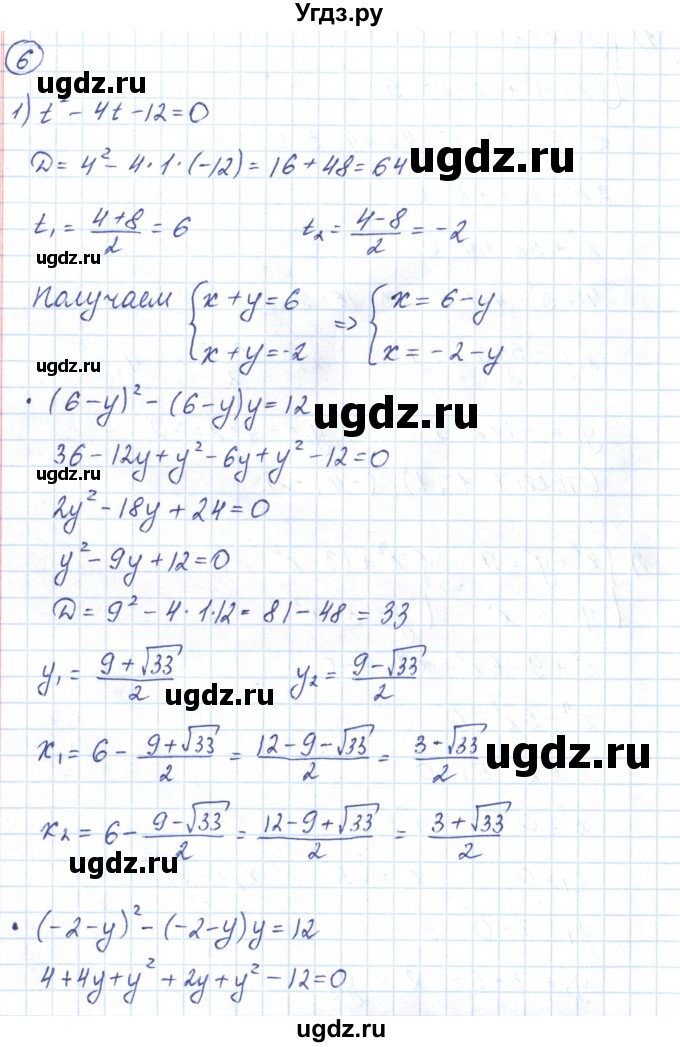 Угдз.ру
6
ugdz.ru
1) t² - 4t - 12 = 0
D = 4² - 4·1·(-12) = 16 + 48 = 64
ugdz.ru
t₁ = (4+8)/2 = 6   t₂ = (4-8)/2 = -2
ugdz.ru
Получаем { x + y = 6 ⇒ { x = 6 - y
x + y = -2   x = -2 - y
ugdz.ru
• (6-y)² - (6-y)y = 12
ugdz.ru
36 - 12y + y² - 6y + y² - 12 = 0
ugdz.ru
2y² - 18y + 24 = 0
y² - 9y + 12 = 0
D = 9² - 4·1·12 = 81 - 48 = 33
y₁ = (9+√33)/2   y₂ = (9-√33)/2
ugdz.ru
x₁ = 6 - (9+√33)/2 = (12-9-√33)/2 = (3-√33)/2
ugdz.ru
x₂ = 6 - (9-√33)/2 = (12-9+√33)/2 = (3+√33)/2
ugdz.ru
• (-2-y)² - (-2-y)y = 12
4 + 4y + y² + 2y + y² - 12 = 0
ugdz.ru